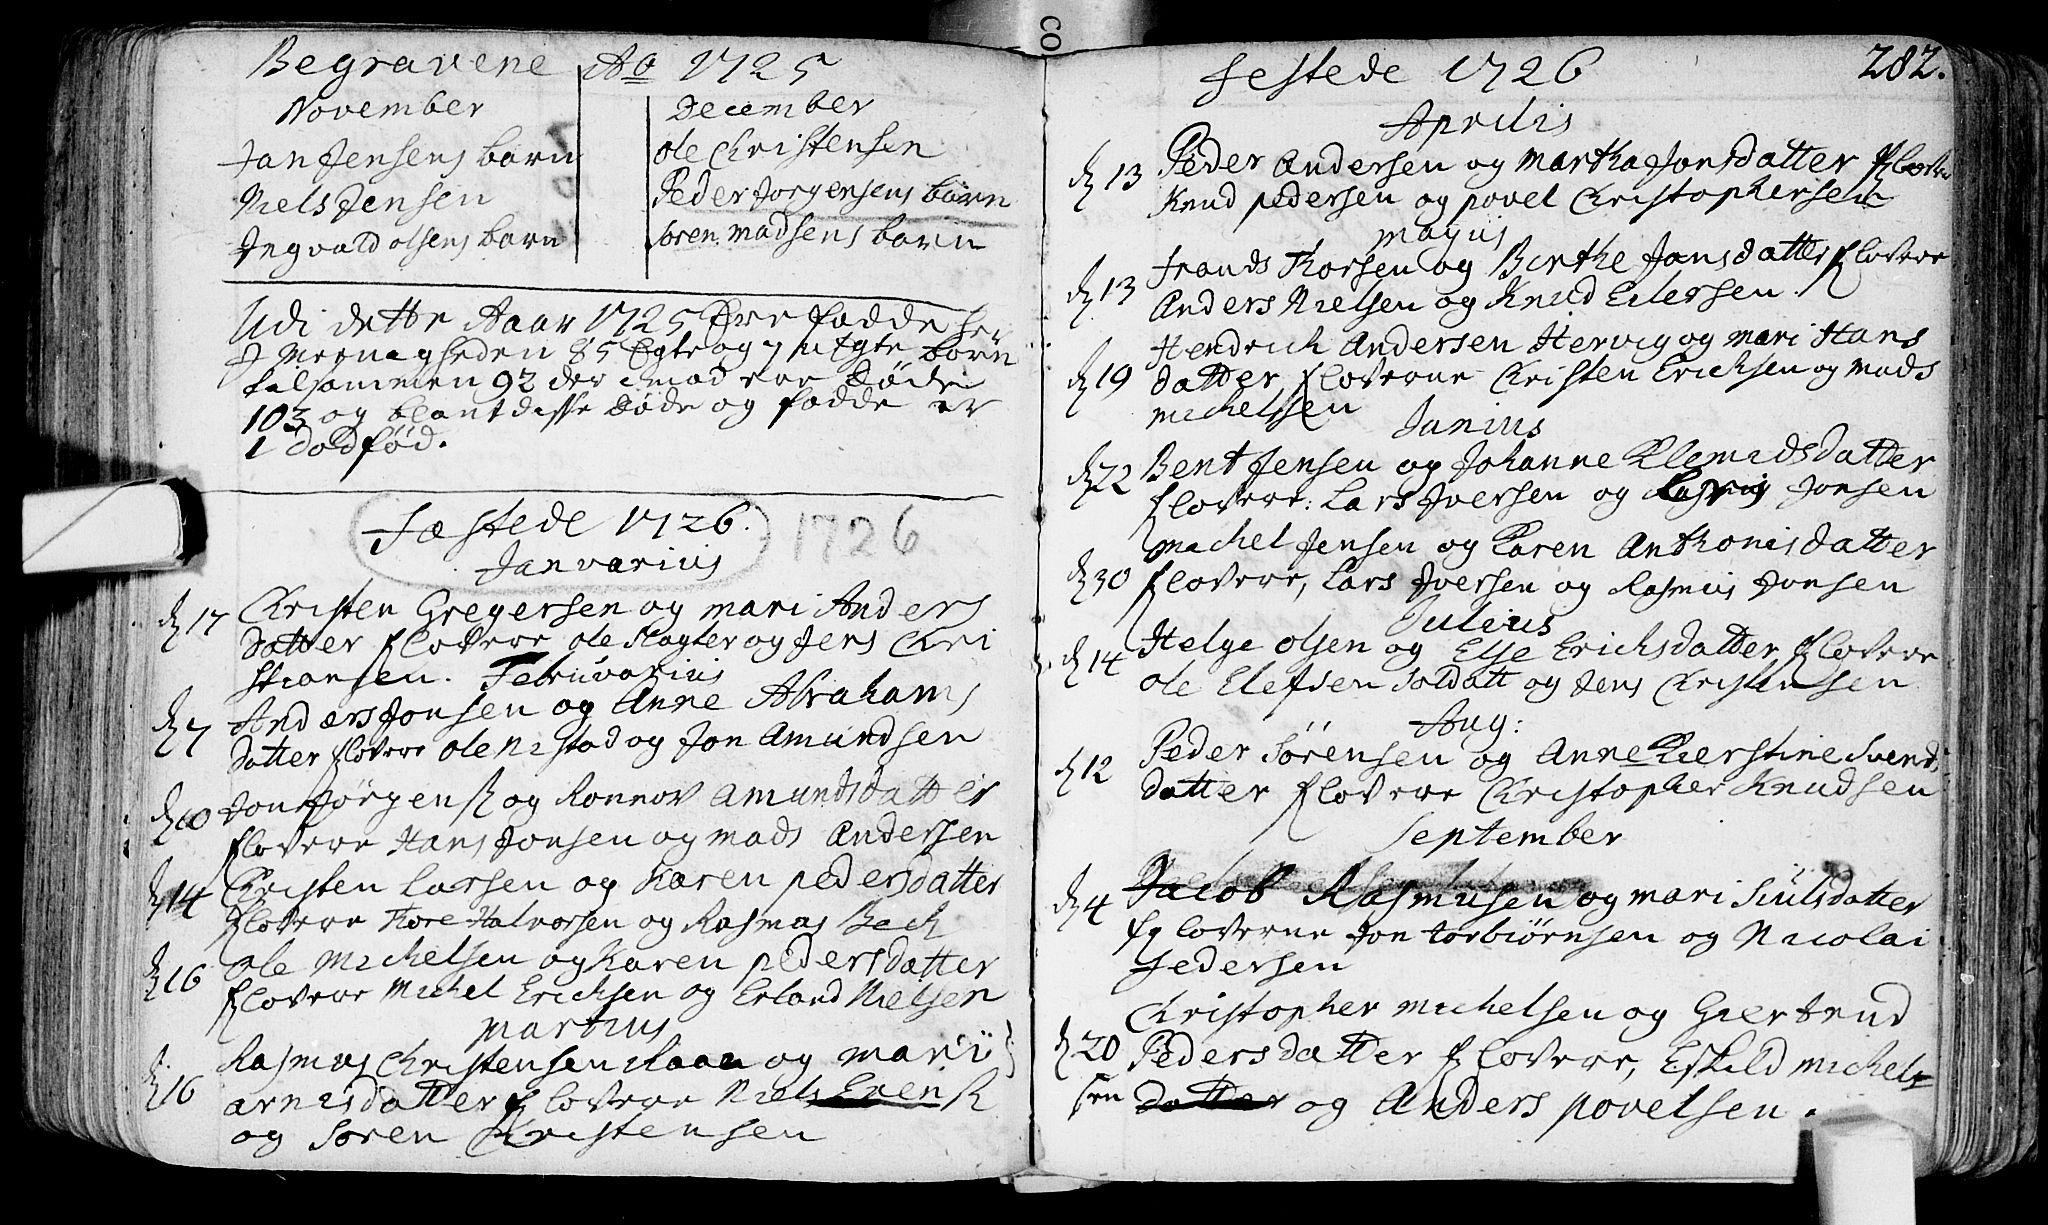 Begravene Ao 1725
November
Jan Jensens barn
Niels Jensen
Ingvald olsens barn
December
ole Christensen
Peder Jorgensens barn
Soren Madsens barn
Udi dette Aaar 1725 Ere fødde her
J Meenigheden 85 Egte og 7 uEgte børn
tilsammen 92 der imod ere døde
103 og blant disse døde og fødde er
1 dødfød.
Fæstede 1726.
1726
Janvarius
d 17 Christen Gregersen og mari Anders
datter floverre ole Slagter og Jens Chri
stiansen. Februvarius
d 7 Anders Jonsen og Anne Abrahams
datter floverre ole nistad og Jon Amundsen
d 10 Jon Jørgens. og Ronnov Amundsdatter
floverre Hans Jonsen og mads Andersen
d 14 Christen Larsen og Karen pedersdatter
floverre Tore Halvorsen og Rasmus Beck
d 16 ole Michelsen og Karen pedersdatter
floverre Michel Ericksen og Erland Nielsen
Martius
Rasmus Christensen og mari
d 16 arnisdatter floverre Niels Evens.
og Soren Christensen
282.
Festede 1726
Aprilis
d 13 Peder Andersen og Martha Jonsdatter flover
Knud pedersen og povel Christophersen
Majus
d 13 frands Thorsen og Birthe Jansdatter floverre
Anders Nielsen og Knud Eilersen.
Hendrich Andersen Hervig og mari Hans
d 19 datter floverne Christen Ericksen og Mads
michelsen
Junius
d 22 Bent Jensen og Johanne Klemidsdatter
floverre: Lars Iversen og Rasmus Jonsen
Michel Jensen og Karen Anthonisdatter
d 30 floverre, Lars Iversen og Rasmus Jonsen
Julius
d 14 Helge olsen og Else Ericksdatter floverre
ole Elefsen Soldatt og Jens Christensen
Aug:
d 12 Peder Sørensen og Anne Kierstine Svends
datter floverre Christopher Knudsen
September
d 4 Jacob Rasmusen og mari Siulsdatter
floverne Jon torbiørnsen og Nicolai
Federsen
Christopher Michelsen og Giertrud
d 20 Pedersdatter floverre, Eskild michel
sen datter og Anders povelsen.